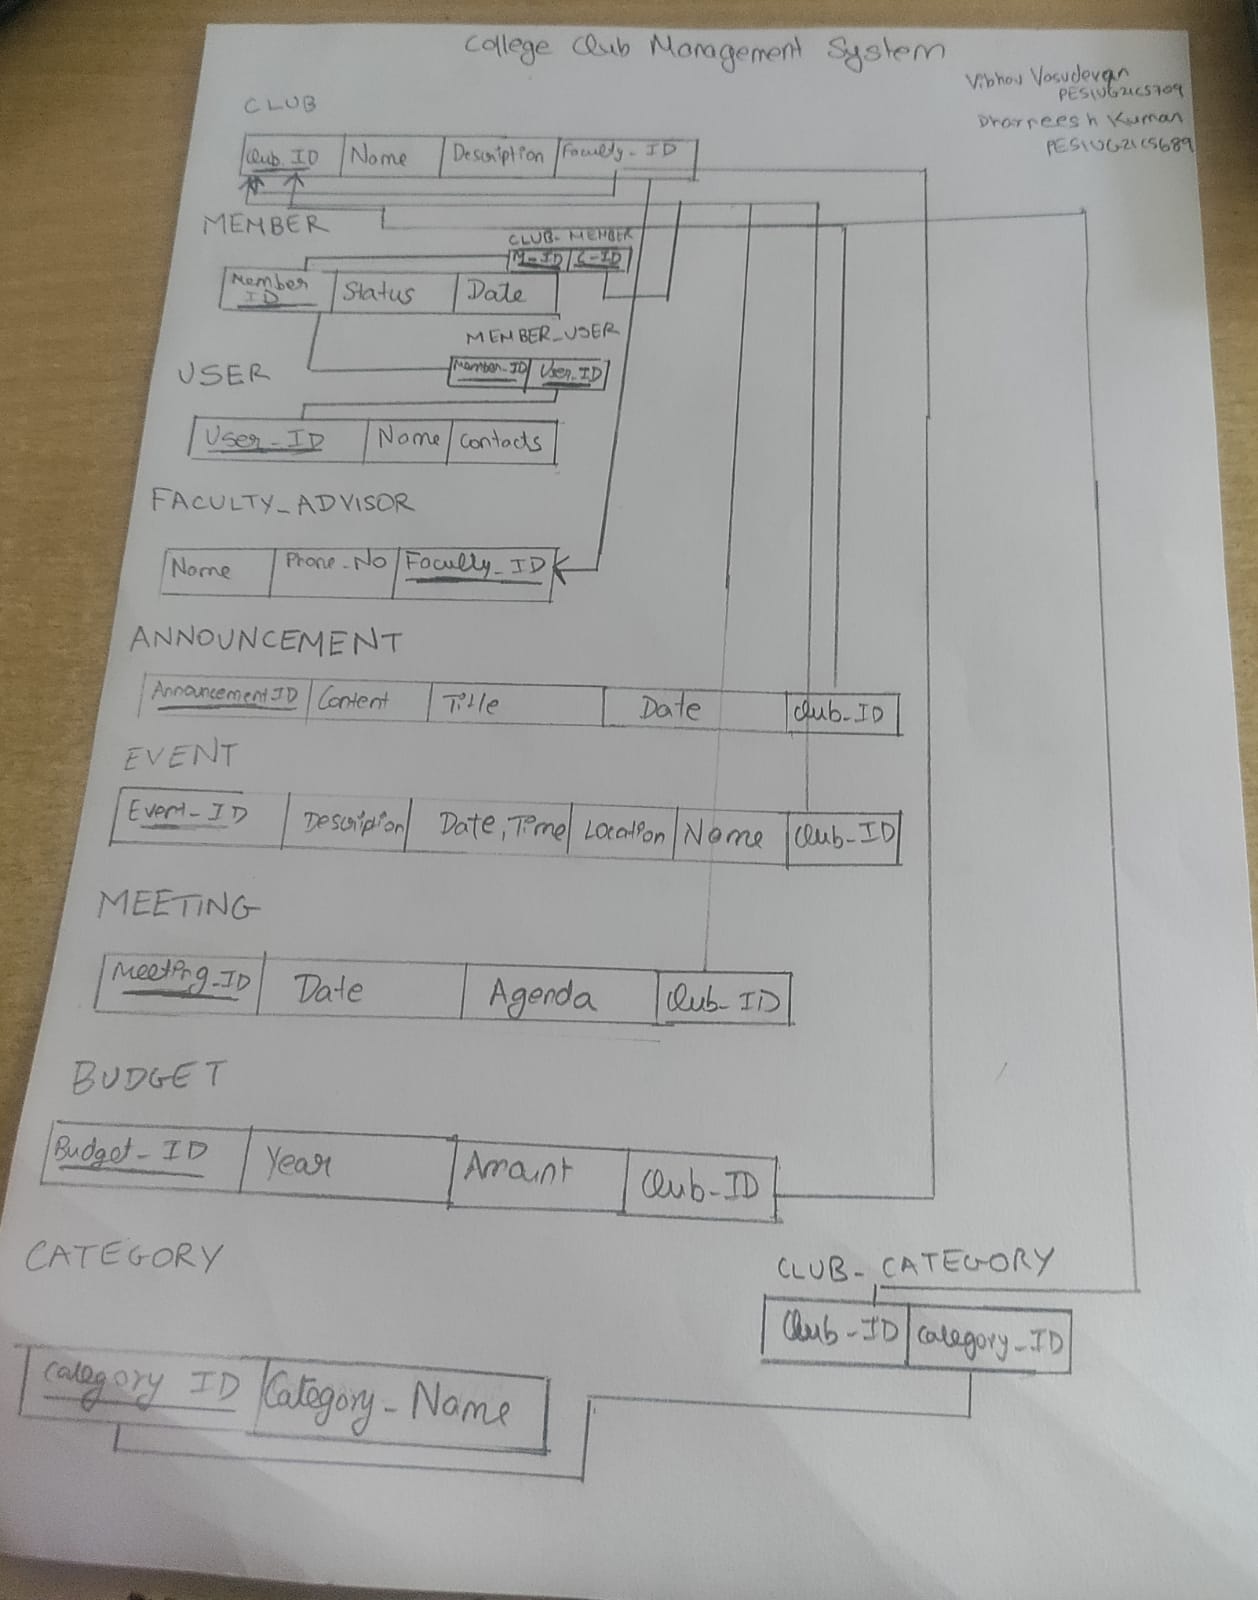 College Club Management System
Vibhav Vasudevan
PES1UG21CS709
Dharneesh Kumar
PES1UG21CS689
CLUB
Club_ID Name Description Faculty_ID
MEMBER
CLUB_MEMBER
M_ID C_ID
Member ID Status Date
MEMBER_USER
Member_ID User_ID
USER
User_ID Name Contacts
FACULTY_ADVISOR
Name Phone_No Faculty_ID
ANNOUNCEMENT
Announcement ID Content Title Date Club_ID
EVENT
Event_ID Description Date, Time Location Name Club_ID
MEETING
Meeting_ID Date Agenda Club_ID
BUDGET
Budget_ID Year Amount Club_ID
CATEGORY
CLUB_CATEGORY
Club_ID Category_ID
Category ID Category_Name